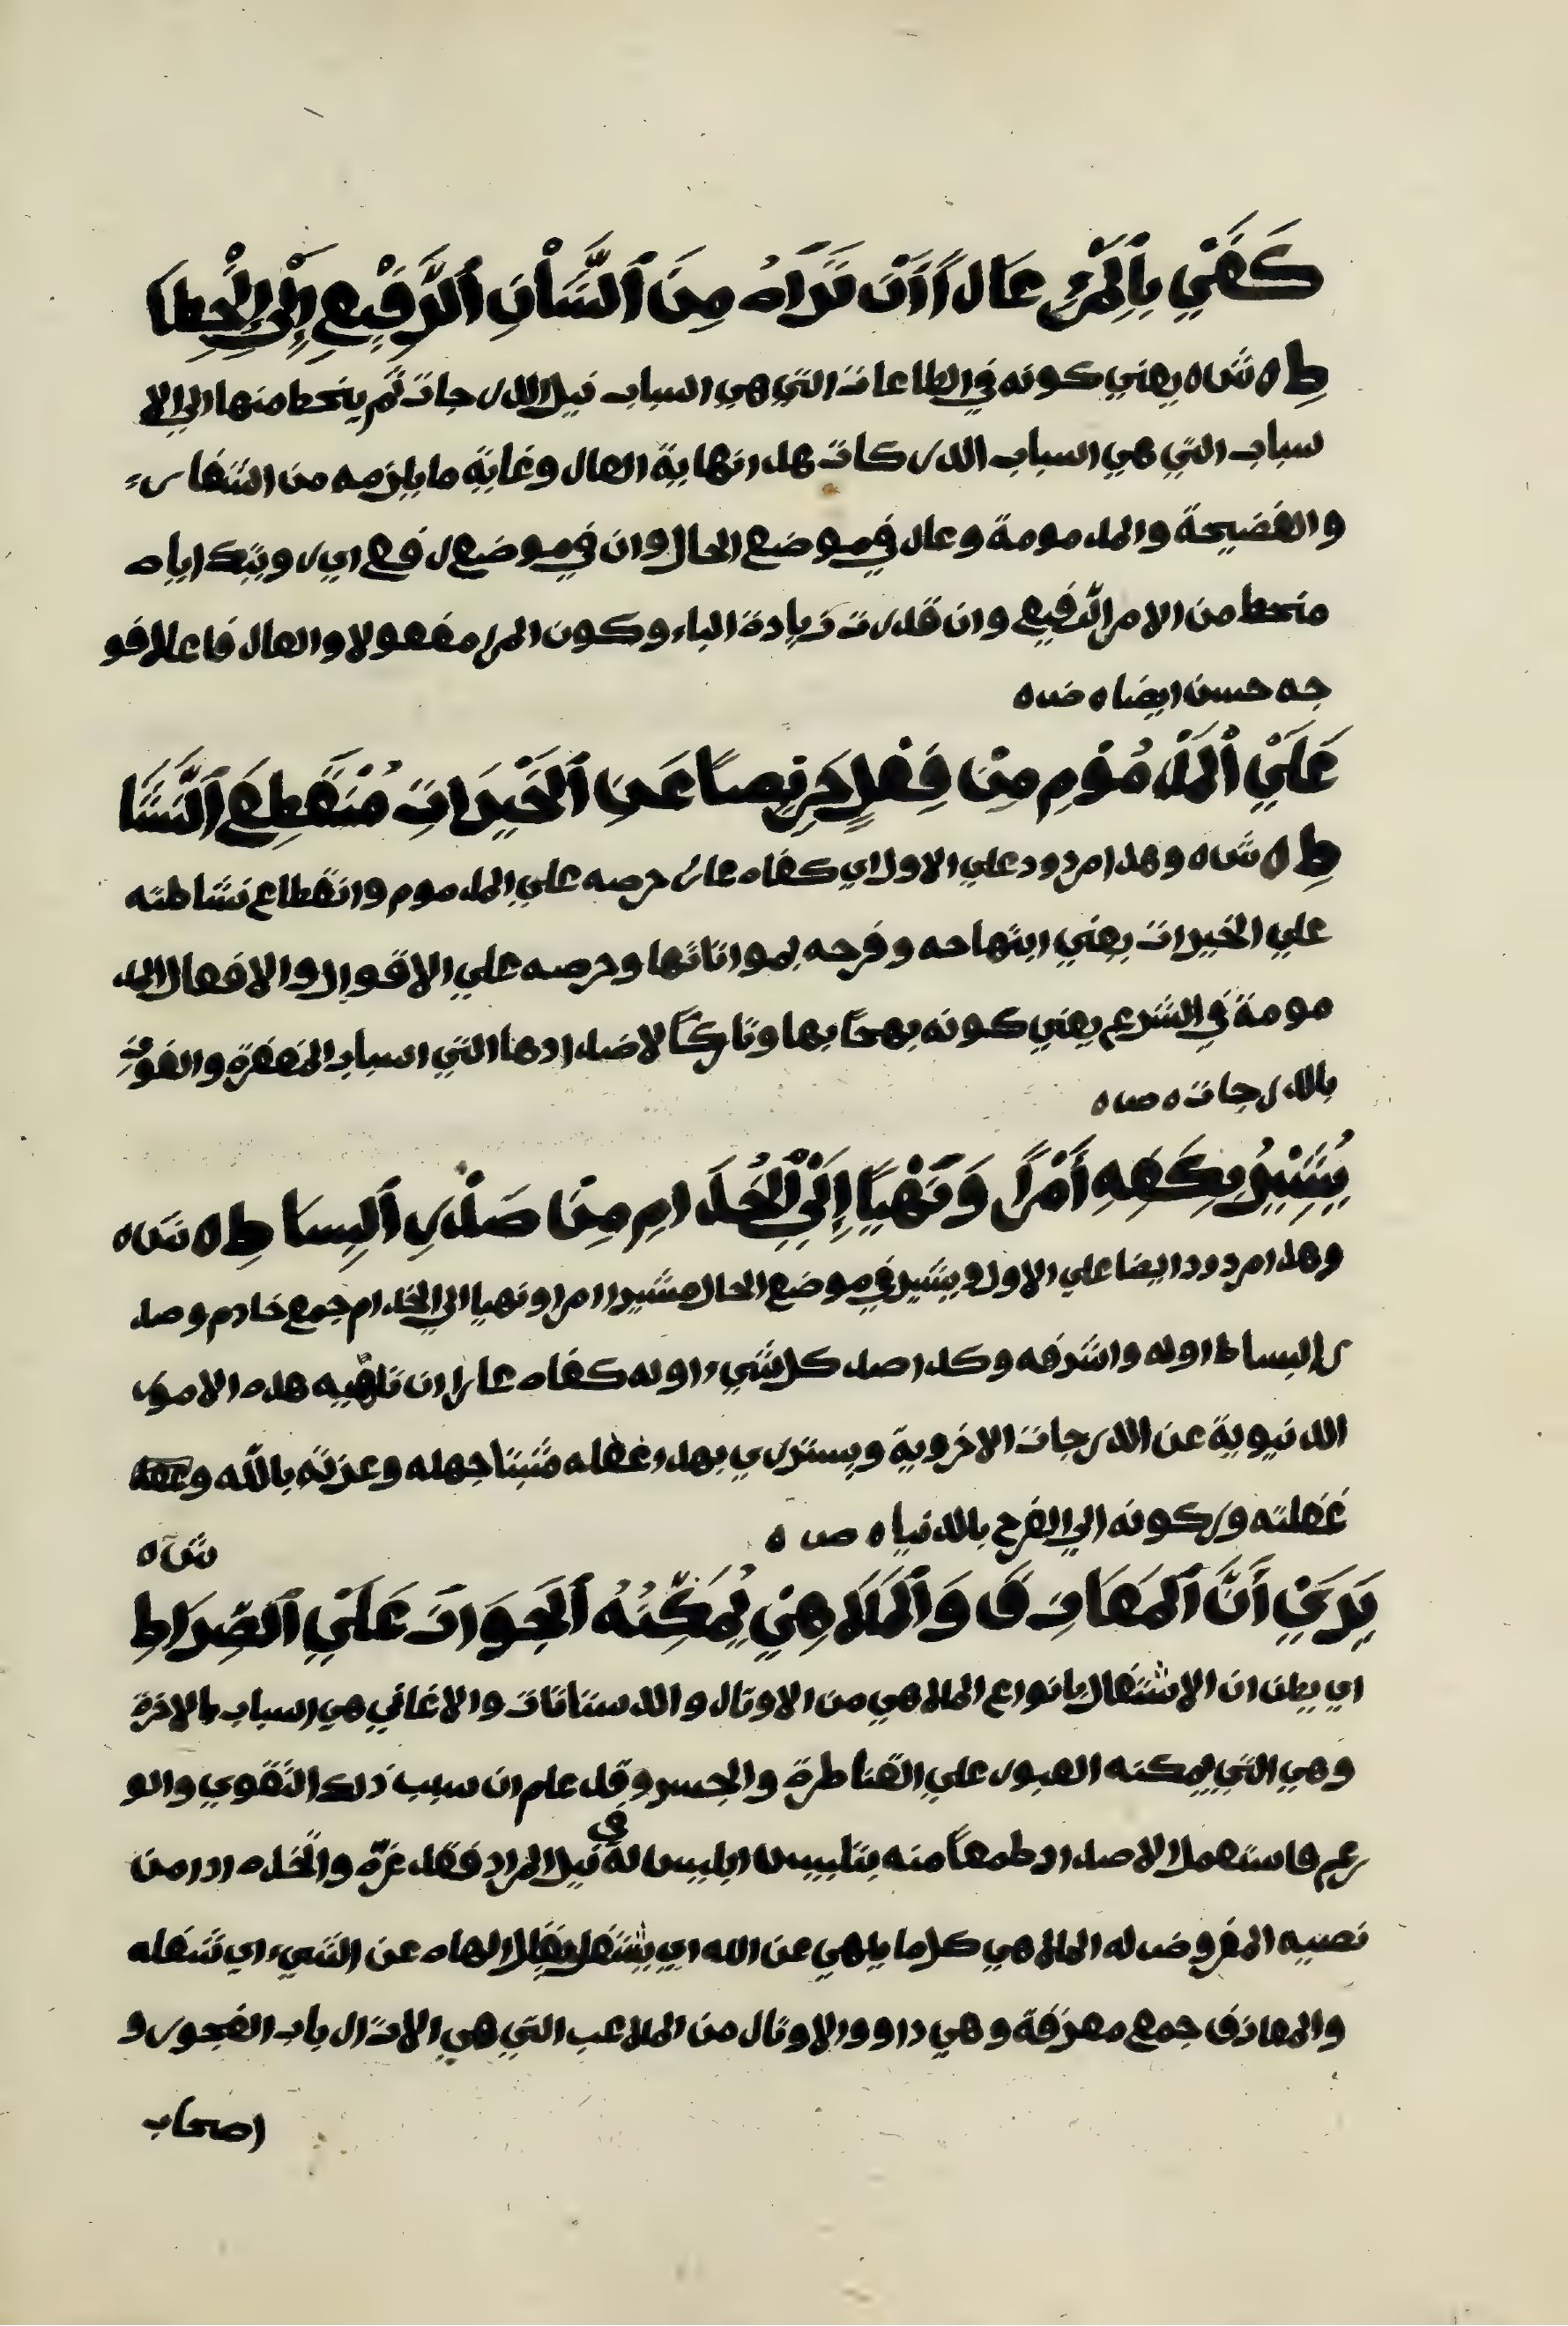 كَفَىٰ بِالْمَرْءِ عَارًا أَنْ تَرَاهُ مِنَ ٱلشَّأْنِ ٱلرَّفِيْعِ إِلَى إِنْحِطَا
طِ ه ش ه يعني كونه في الطاعات التي هي اسباب نيل الدرجات ثم ينحط منها الي الا
سباب التي هي اسباب الدركات هذا نهاية العار وغاية ما يلزمه من الشنار
والفضيحة والمذمومة وعار في موضع الحال وان في موضع رفع اي رويتك اياه
منحط من الامر الرفيع وان قدرت زيادة الباء وكون المرء مفعولا والعار فاعلا فو
جه حسن ايضا ه ص ه
عَلَي ٱلْمَذْمُوْمِ مِنْ فِعْلٍ حَرِيصًا عَنِ ٱلْخَيْرَاتِ مُنْقَطِعَ ٱلنَّشَا
طِ ه ش ه وهذا مردود علي الاول اي كفاه عار حرصه علي المذموم وانقطاع نشاطته
علي الخيرات يعني ابتهاجه وفرحه بمواتاتها وحرصه علي الاقوال والافعال المذ
مومة في الشرع يعني كونه بهجًا بها وتاركًا لاضدادها التي اسباب المغفرة والفوز
بالدرجات ه ص ه
يُشِيْرُ بِكَفِّهِ أَمْرًا وَنَهْيًا إِلَي ٱلْخُدَّامِ مِنْ صَدْرِ ٱلبِسَاطِ ه ش ه
وهذا مردود ايضا علي الاول ويشير في موضع الحال مشيرا امرا ونهيا الي الخدام جمع خادم وصد
ر البساط اوله واشرفه وكذا صدر كل شيء اوله كفاه عارا ان تلهيه هذه الامور
الدنيوية عن الدرجات الاخروية ويستزري بهذا غفله مثبتا جهله وعزته بالله و
غفلته وركونه الي الفرح بالدنيا ه ص ه
ش ه
يَرَي أَنَّ ٱلمَعَازِفَ وَٱلْمَلَاهِي يُمَكِّنُهُ ٱلْجَوَازَ عَلَي ٱلصِّرَاطِ
اي يظن ان الاشتغال بانواع الملاهي من الاوتار والدستانات والاغاني هي اسباب الاخرة
وهي التي يمكنه العبور علي القناطرة والجسر وقد علم ان سبب ذلك التقوي والو
رع فاستعمل الاضداد طمعًا منه بتلبيس ابليس له في نيل المراد فقد غرّه واتّخذه ادا من
نصيبه المفروض له الملاهي كل ما يلهي عن الله اي يشتغل يقال الهاه عن الشيء اي شغله
والمعازف جمع معزفة وهي ذاوو الاوتار من الملاعب التي هي الات ارباب الفجور و
اصحاب